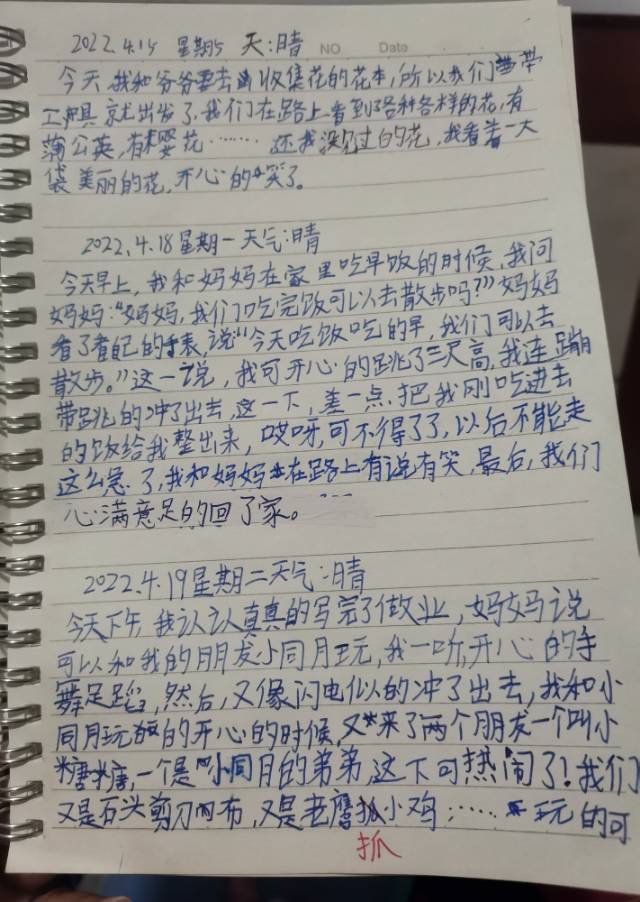 2022.4.15 星期5 天:晴 NO Date
今天我和爷爷要去收集花的花本,所以我们带
工具就出发了,我们在路上看到了各种各样的花,有
蒲公英,有樱花……还我没见过的花,我看着一大
袋美丽的花,开心的笑了。
2022.4.18星期一天气:晴
今天早上,我和妈妈在家里吃早饭的时候,我问
妈妈:“妈妈,我们吃完饭可以去散步吗?”妈妈
看了看自己的手表,说“今天吃饭吃的早,我们可以去
散步。”这一说,我可开心的跳了三尺高,我连蹦
带跳的冲了出去,这一下,差一点把我刚吃进去
的饭给我整出来,哎呀,可不得了了,以后不能走
这么急了,我和妈妈在路上有说有笑,最后,我们
心满意足的回了家。
2022.4.19星期二天气:晴
今天下午我认认真真的写完了做业,妈妈说
可以和我的朋友小同月玩,我一听,开心的手
舞足蹈,然后,又像闪电似的冲了出去,我和小
同月玩的开心的时候,又来了两个朋友一个叫小
糖糖,一个是小同月的弟弟,这下可热闹了!我们
又是石头剪刀布,又是老鹰抓小鸡……玩的可
抓